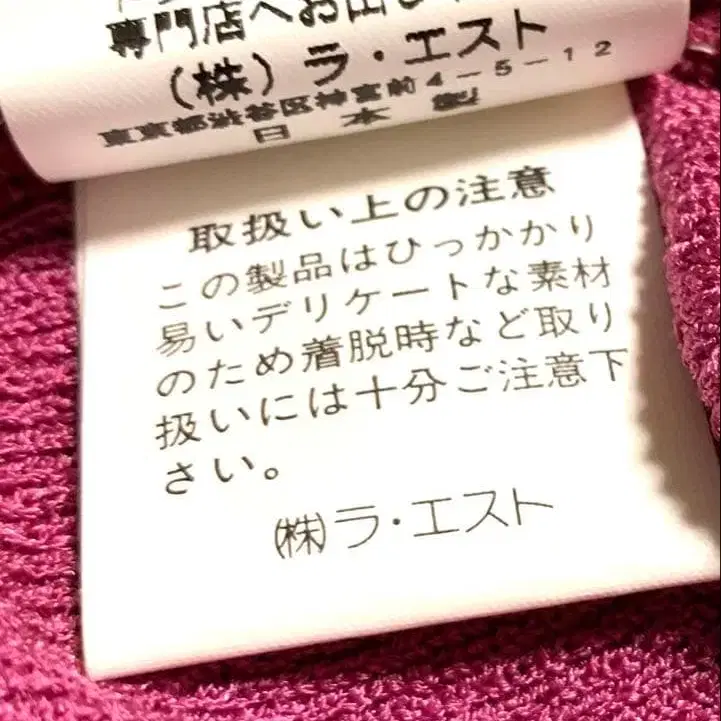 専門店へお出し
(株)ラ・エスト
東京都渋谷区神宮前4-5-12
日本製
取扱い上の注意
この製品はひっかかり
易いデリケートな素材
のため着脱時など取り
扱いには十分ご注意下
さい。
㈱ラ・エスト